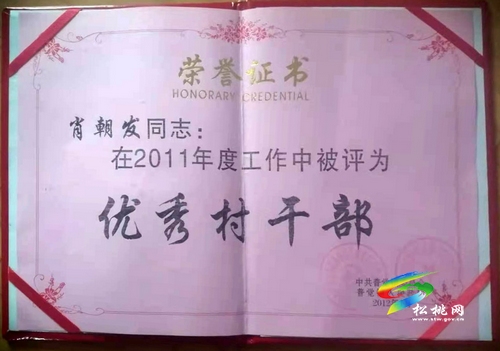 荣誉证书
HONORARY CREDENTIAL
肖朝发同志：
在2011年度工作中被评为
优秀村干部
中共普觉
普觉
2012
松桃网
www.stw.gov.cn